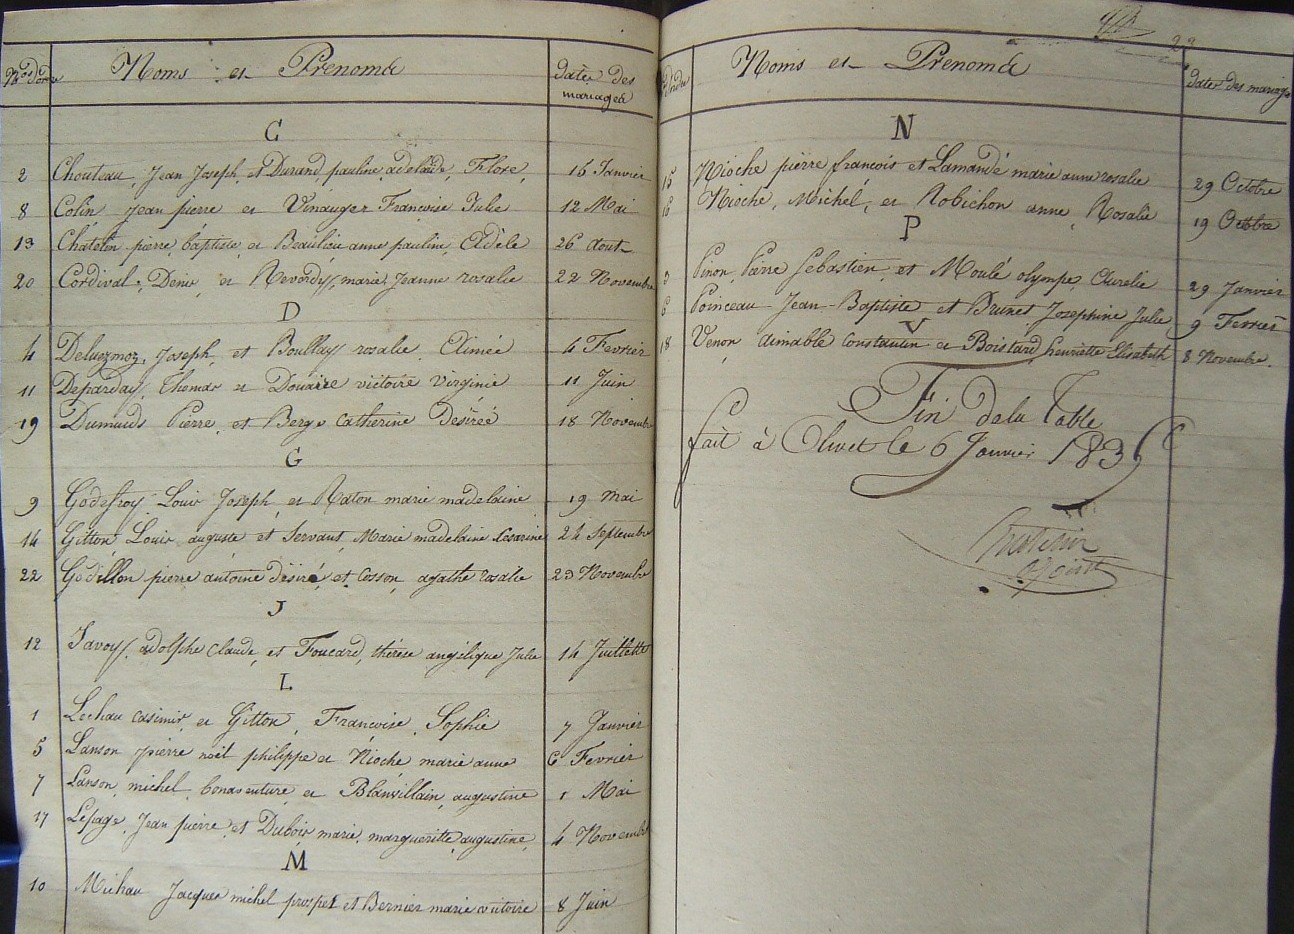 Noms et Prenoms
dates des
mariages
C
2 Chouteau, Jean Joseph, et Durand, pauline, adelaïde, Flore, 15 Janvier
8 Colin, Jean pierre et Vinauger Francoise Julie 12 Mai
13 Châtelin pierre baptiste et Beaulieu anne pauline, Adèle 26 Aout
20 Cordival, Denis, et Reverdy, marie, Jeanne rosalie 22 Novembre
D
4 Joseph, et Boullay rosalie, Aimée 4 Fevrier
11 Deparday, Thomas et Douaire victoire Virginie 11 Juin
19 Dumuids Pierre, et Berge Catherine Désirée 18 Novembre
G
9 Godefroy, Louis Joseph, et Raton marie madelaine 19 Mai
14 Gitton Louis auguste et Servant, Marie madelaine Césarine 24 Septembre
22 Godillon pierre antoine Désiré, et Cosson, agathe rosalie 23 Novembre
J
12 Javoy, adolphe Claude, et Foucard, thérèse angélique Julie 14 Juillette
L
1 Lochau casimir et Gitton, Francoise, Sophie 7 Janvier
5 Lanson pierre noël philippe et Nioche marie anne 6 Fevrier
7 Lanson, michel, bonaventure, et Blanvillain, augustine 1 Mai
17 Lepage, Jean pierre, et Dubois, marie, margueritte, augustine, 4 Novembre
M
10 Michau Jacques michel prosper et Bernier marie victoire 8 Juin
23
Noms et Prenoms
dates des mariages
N
15 Nioche pierre francois et Lamandé marie anne rosalie 29 Octobre
16 Nioche, Michel, et Robichon anne, Rosalie 19 Octobre
P
3 Pinon Pierre Sebastien, et Moulé olympe, Aurelie 29 Janvier
6 Poinceau Jean Baptiste et Brunet Josephine Julie 9 Fevrier
V
18 Venon, aimable Constantin et Boistard, henriette Elisabeth 8 Novembre.
Fin de la Table
fait à Olivet le 6 Janvier 1835
adjoint